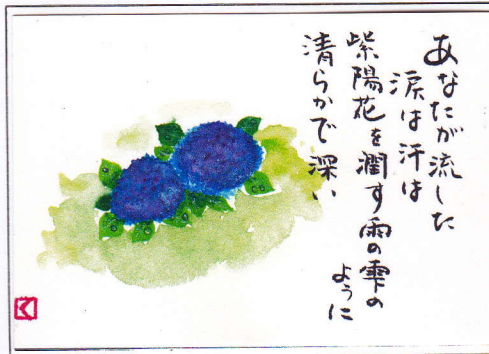 あなたが流した
涙は汗は
紫陽花を潤す雨の雫の
ように
清らかで深い
く